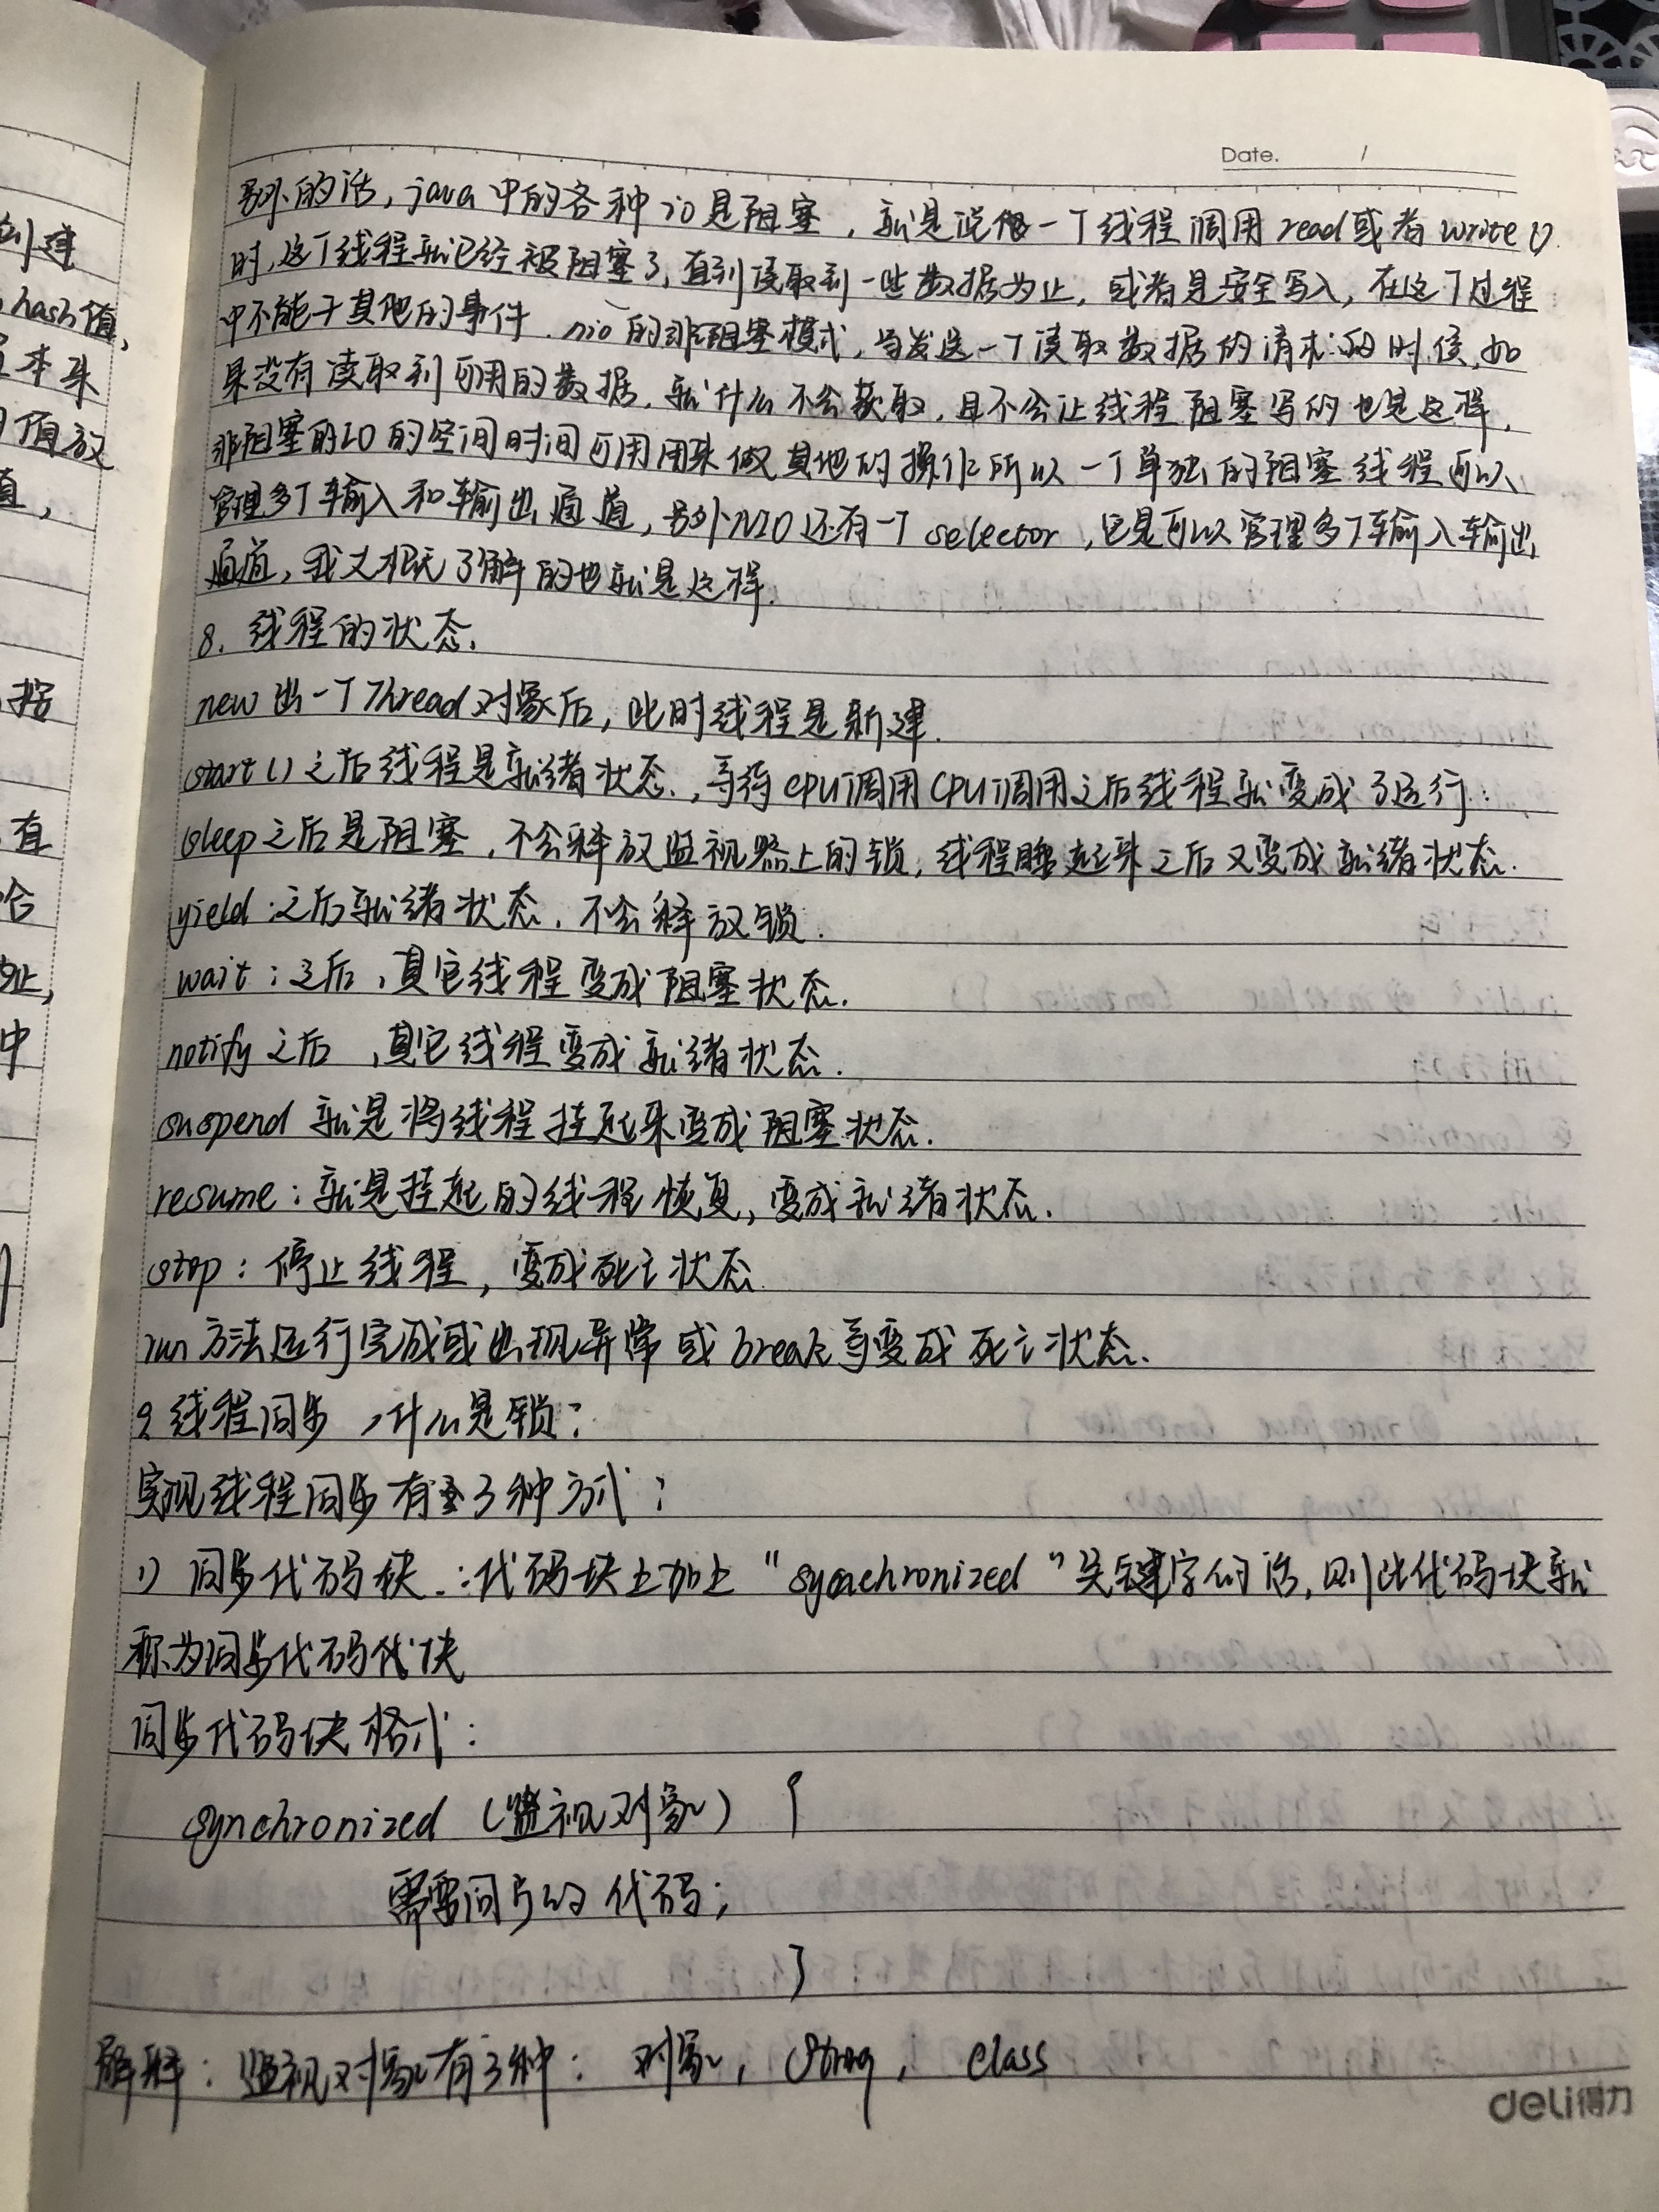 Date. /
另外的话,java中的各种io是阻塞,就是说做一个线程调用read或者write()
时,这个线程就已经被阻塞了,直到读取到一些数据为止,或者是安全写入,在这个过程
中不能干其他的事件.nio的非阻塞模式,当发送一个读取数据的请求的时候,如
果没有读取到可用的数据,就什么不会获取,且不会让线程阻塞写的也是这样.
非阻塞的IO的空间时间可用用来做其他的操作所以一个单独的阻塞线程可以
管理多个输入和输出通道,另外NIO还有一个selector,它是可以管理多个输入输出
通道,我大概了解的也就是这样.
8.线程的状态.
new出一个Thread对象后,此时线程是新建.
start()之后线程是就绪状态.,等待CPU调用CPU调用之后线程就变成了运行:
sleep之后是阻塞,不会释放监视器上的锁,线程睡起来之后又变成就绪状态.
yield:之后就绪状态.不会释放锁.
wait:之后,其它线程变成阻塞状态.
notify之后,其它线程变成就绪状态.
suspend 就是将线程挂起来变成阻塞状态.
resume:就是挂起的线程恢复,变成就绪状态.
stop:停止线程,变成死亡状态
run方法运行完成或出现异常或break等变成死亡状态.
9.线程同步,什么是锁:
实现线程同步有3种方式:
1)同步代码块.:代码块上加上"synchronized"关键字的话,则此代码块就
称为同步代码代块
同步代码块格式:
synchronized (监视对象) {
需要同步的代码;
}
解释:监视对象有3种: 对象, String, class
deli得力
创建
hash值,
本来
值放
值,
按
有
哈
址,
中